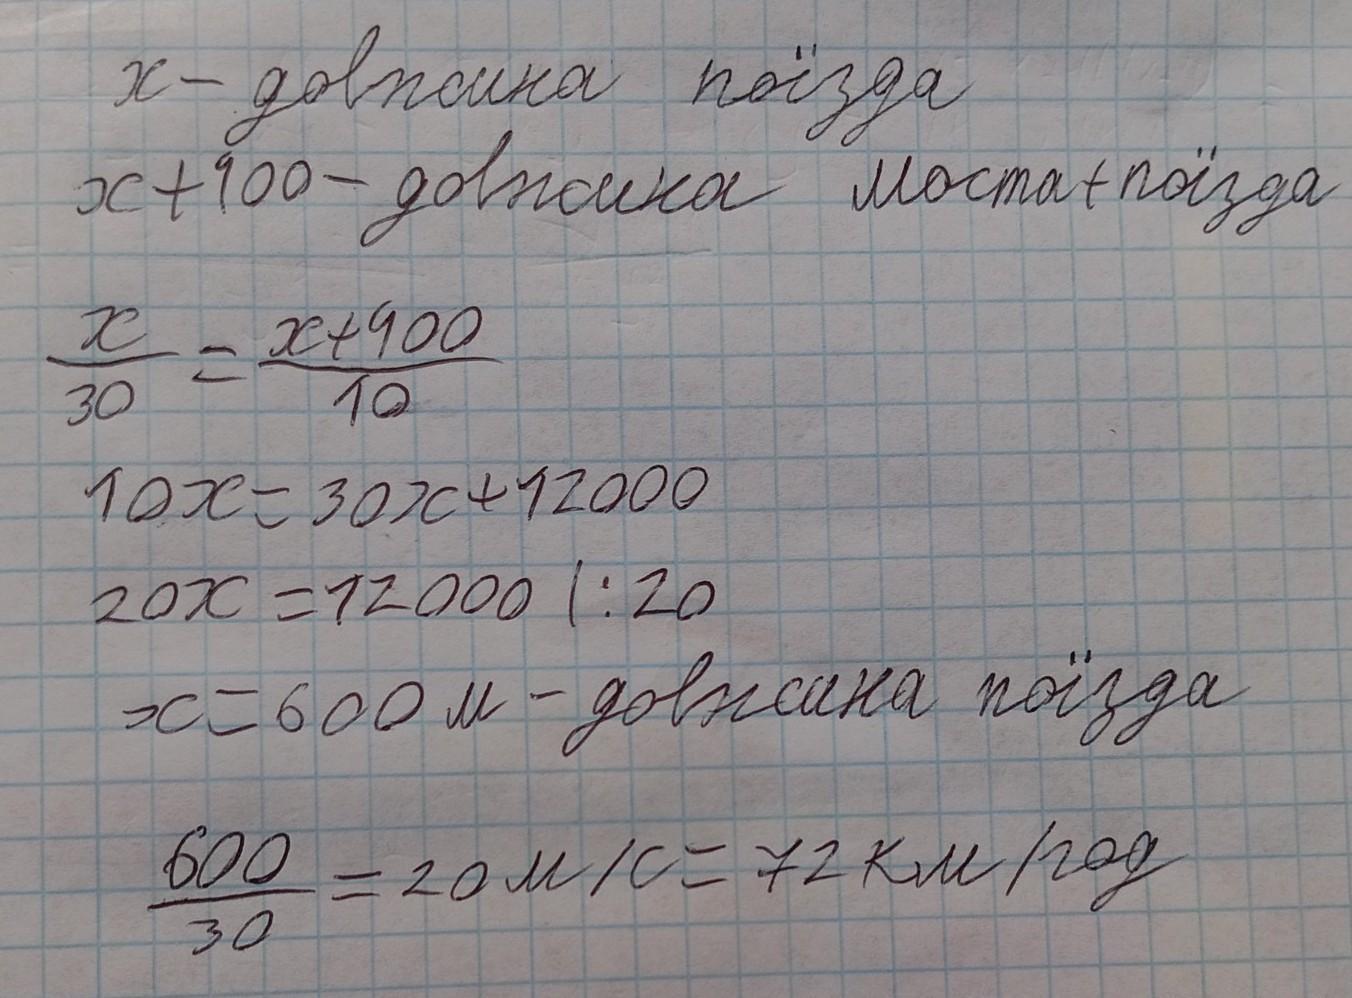 x - довжина поїзда
x+900 - довжина моста+поїзда
x/30 = x+900/10
10x=30x+12000
20x=12000 |:20
x=600 м - довжина поїзда
600/30 = 20 м/с = 72 км/год